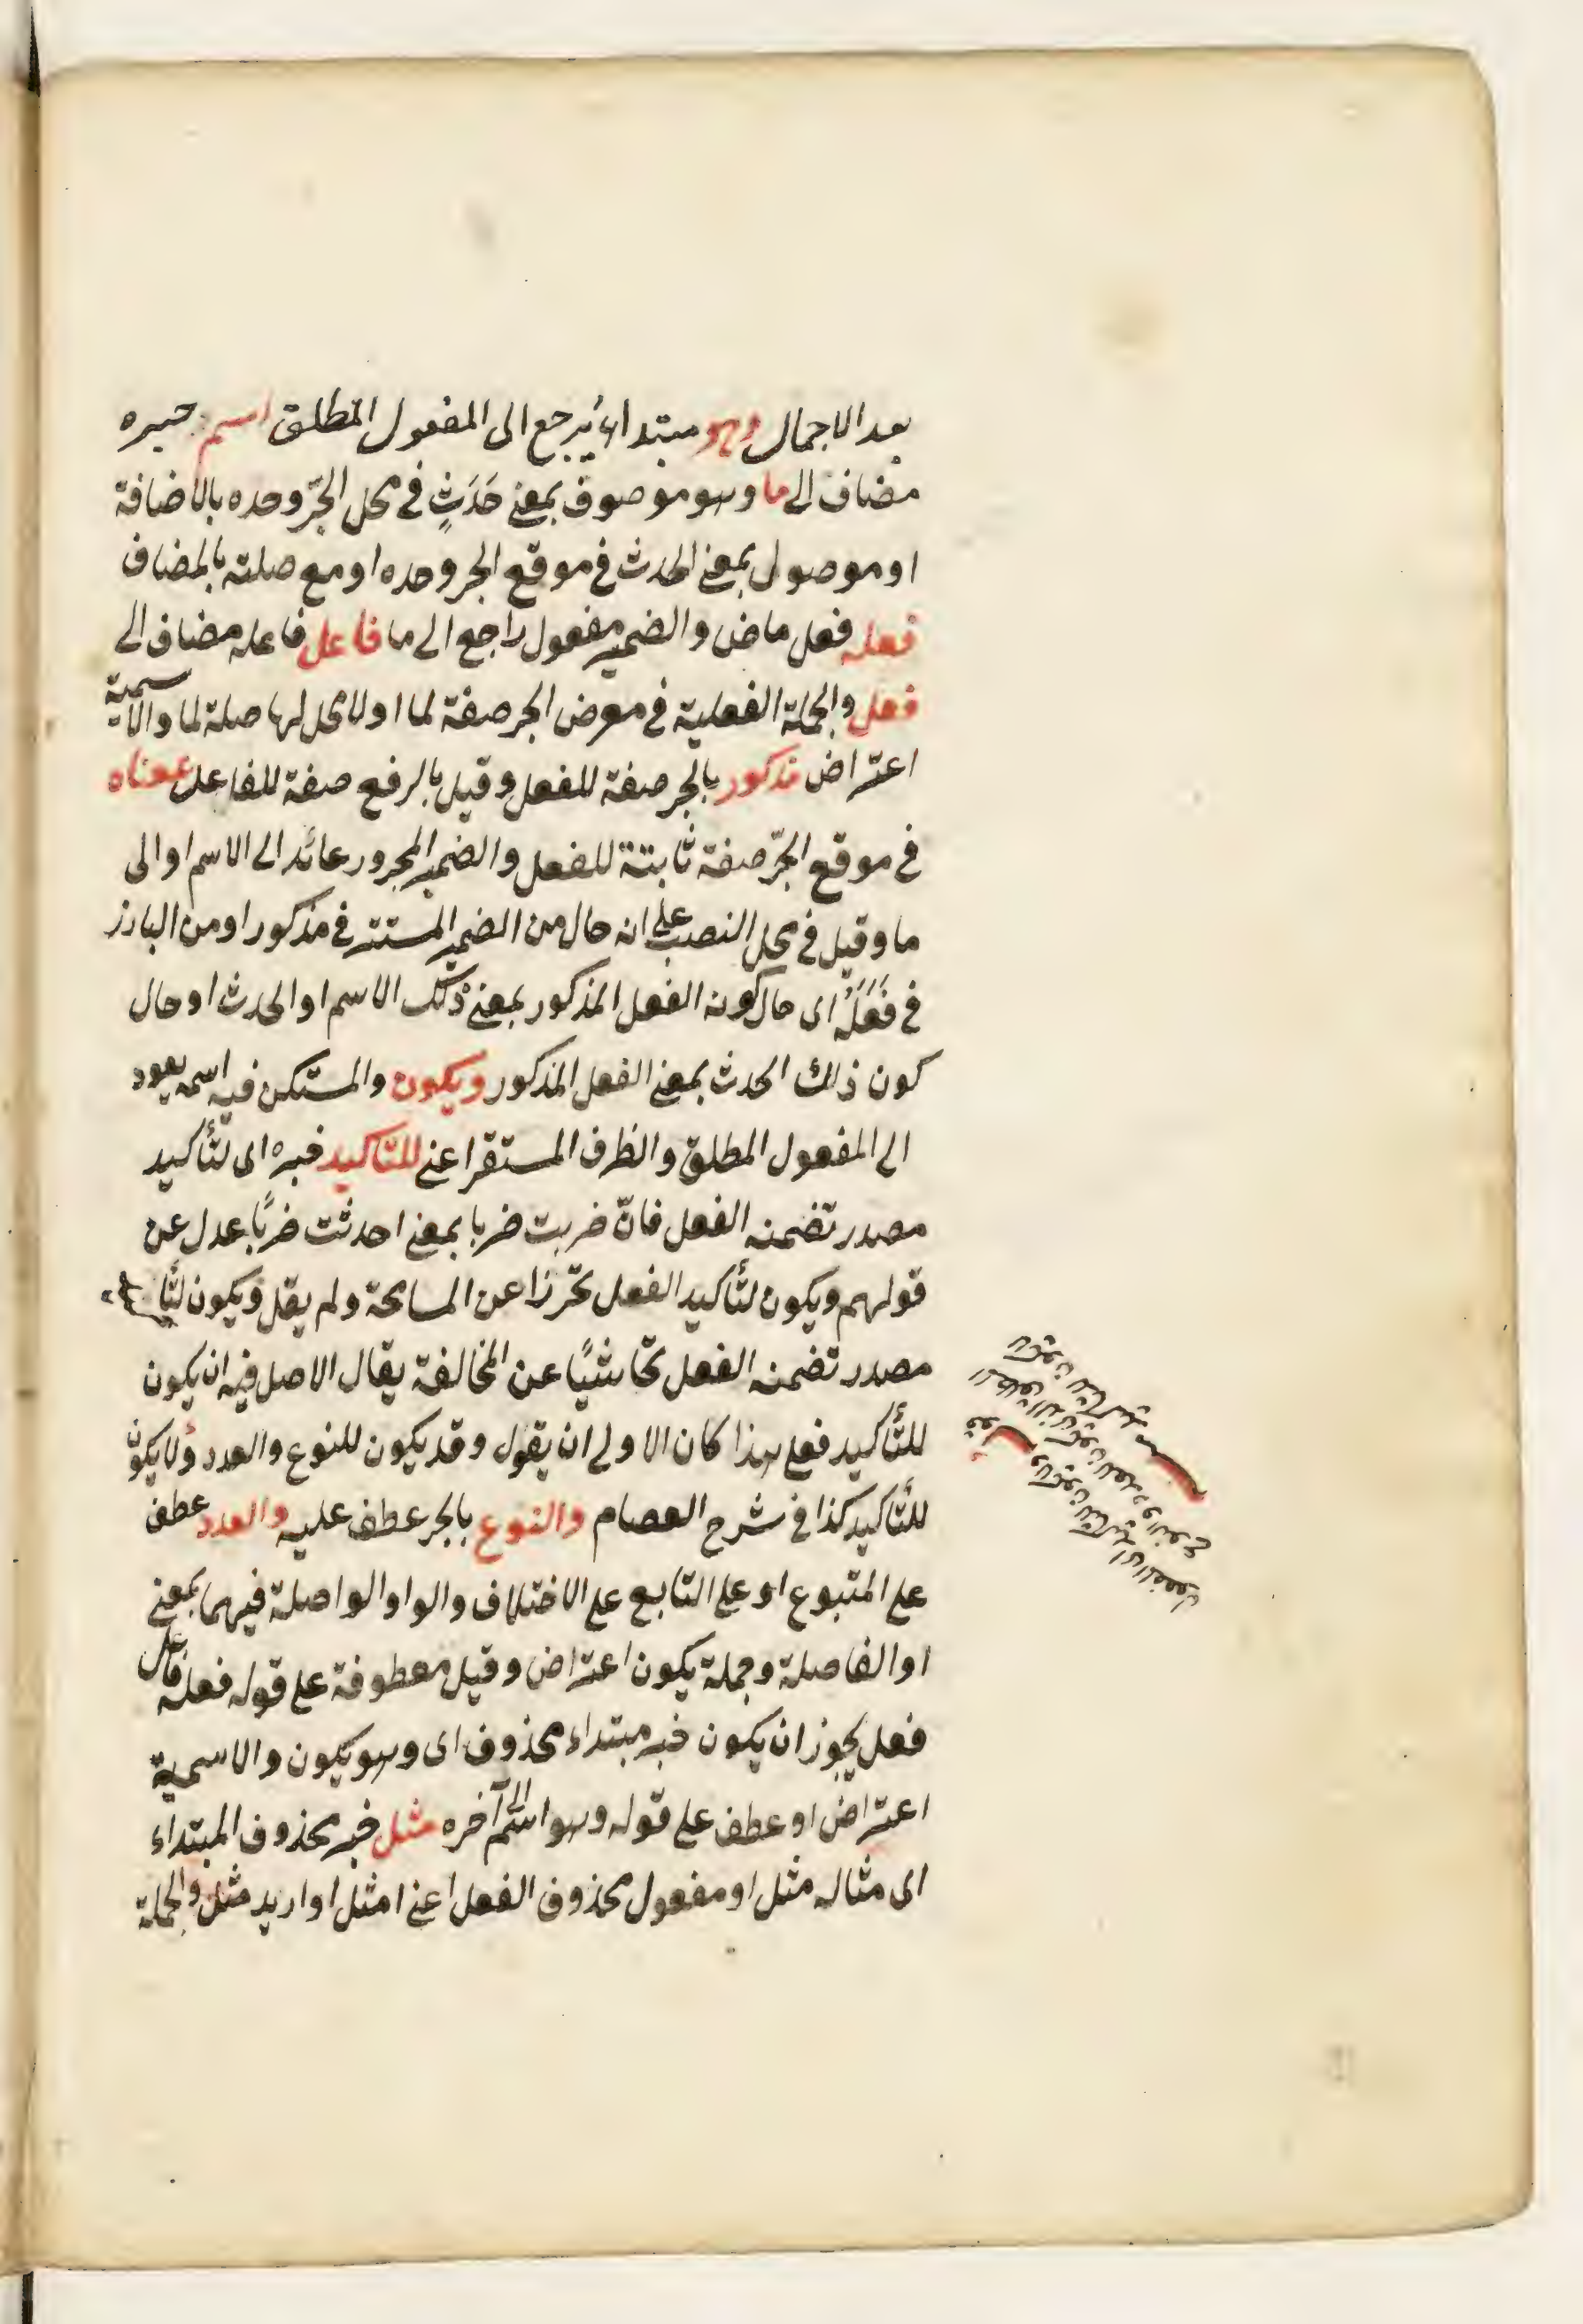 بعد الاجمال وهو مبتداء يرجع الى المفعول المطلق اسم خبره
مضاف الى ما وهو موصوف بمعنى حَدَثٍ فى محل الجرّ وحده بالاضافة
او موصول بمعنى الحدث فى موقع الجر وحده او مع صلته بالمضاف
فعله فعل ماض والضمير مفعول راجع الى ما فاعل فاعله مضاف الى
فعل والجملة الفعلية فى معرض الجر صفة لما او لا محل لها صلة لما والاسمية
اعتراض مذكور بالجر صفة للفعل وقيل بالرفع صفة للفاعل بمعناه
فى موقع الجرّ صفة ثابتة للفعل والضمير المجرور عائد الى الاسم او الى
ما وقيل فى محل النصب على انه حال من الضمير المستتر فى مذكور او من البارز
فى فَعَلَهُ اى حال كونه الفعل المذكور بمعنى ذلك الاسم او الحدث او حال
كون ذلك الحدث بمعنى الفعل المذكور ويكون والمستكن فيه اسمه يعود
الى المفعول المطلق والظرف المستقر اعنى للتاكيد خبره اى لتأكيد
مصدر تضمنه الفعل فانّ ضربت ضربا بمعنى احدثت ضربًا عدل عن
قولهم ويكون لتأكيد الفعل تحرزا عن المسامحة ولم يقل ويكون لتأكيد
مصدر تضمنه الفعل تحاشيًا عن المخالفة يقال الاصل فيه ان يكون
للتأكيد فعلى هذا كان الاولى ان يقول وقد يكون للنوع والعدد ولا يكون
للتأكيد كذا فى شرح العصام والنوع بالجر عطف عليه والعدد عطف
على المتبوع او على التابع على الاختلاف والواو الواصلة فيهما بمعنى
او الفاصلة وجملة يكون اعتراض وقيل معطوفة على قوله فعله فاعل
فعل يجوز ان يكون خبر مبتداء محذوف اى وهو يكون والاسمية
اعتراض او عطف على قوله وهو اسم الى آخره مثل خبر محذوف المبتداء
اى مثاله مثل او مفعول محذوف الفعل اعنى امثل او اريد مثل والجملة